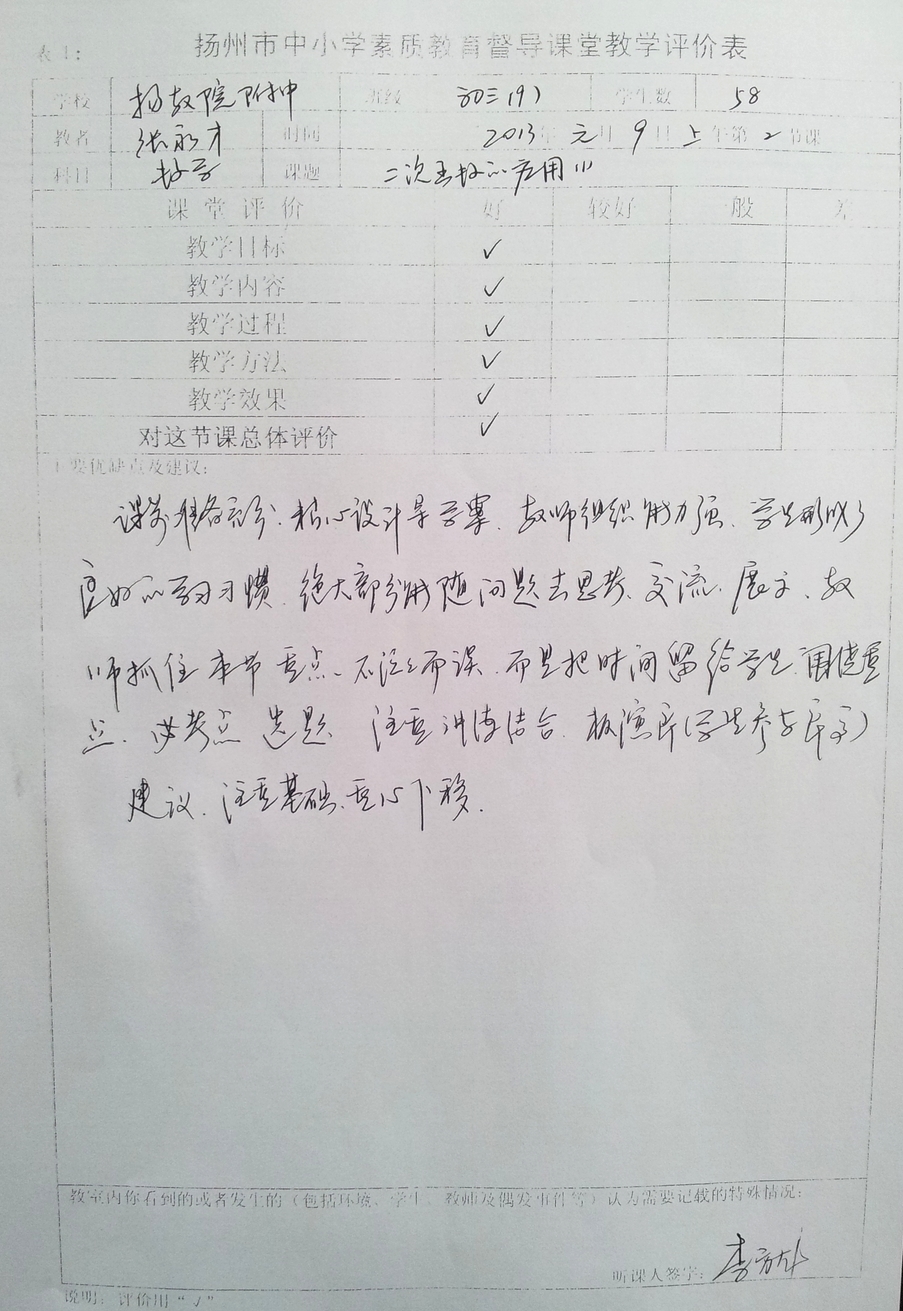 表1:
扬州市中小学素质教育督导课堂教学评价表
学校 扬教院附中 班级 初三(9) 学生数 58
教者 张永才 时间 2013年 元月 9日 上午第 2 节课
科目 数学 课题 二次函数的应用(1)
课堂评价 好 较好 一般 差
教学目标 ✓
教学内容 ✓
教学过程 ✓
教学方法 ✓
教学效果 ✓
对这节课总体评价 ✓
主要优缺点及建议:
课前准备充分、精心设计导学案、教师组织能力强、学生形成了
良好的学习习惯、绝大部分能随问题去思考、交流、展示、教
师抓住本节重点、不泛泛而谈、而是把时间留给学生、围绕重
点、必考点选题 注重讲练结合、板演(学生参与
建议、注重基础、重心下移.
教室内你看到的或者发生的(包括环境、学生、教师及偶发事件等)认为需要记载的特殊情况:
听课人签字: 李
说明: 评价用“√”